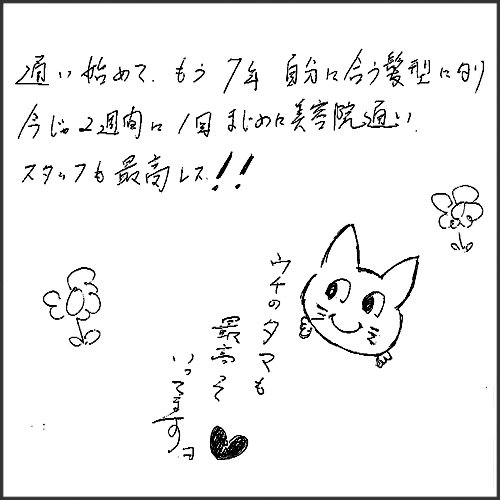 通い始めて、もう7年 自分に合う髪型になり
今じゃ2週間に1回 まじめに美容院通い。
スタッフも最高レス!!
ウチのタマも
最高って
いってますヨ